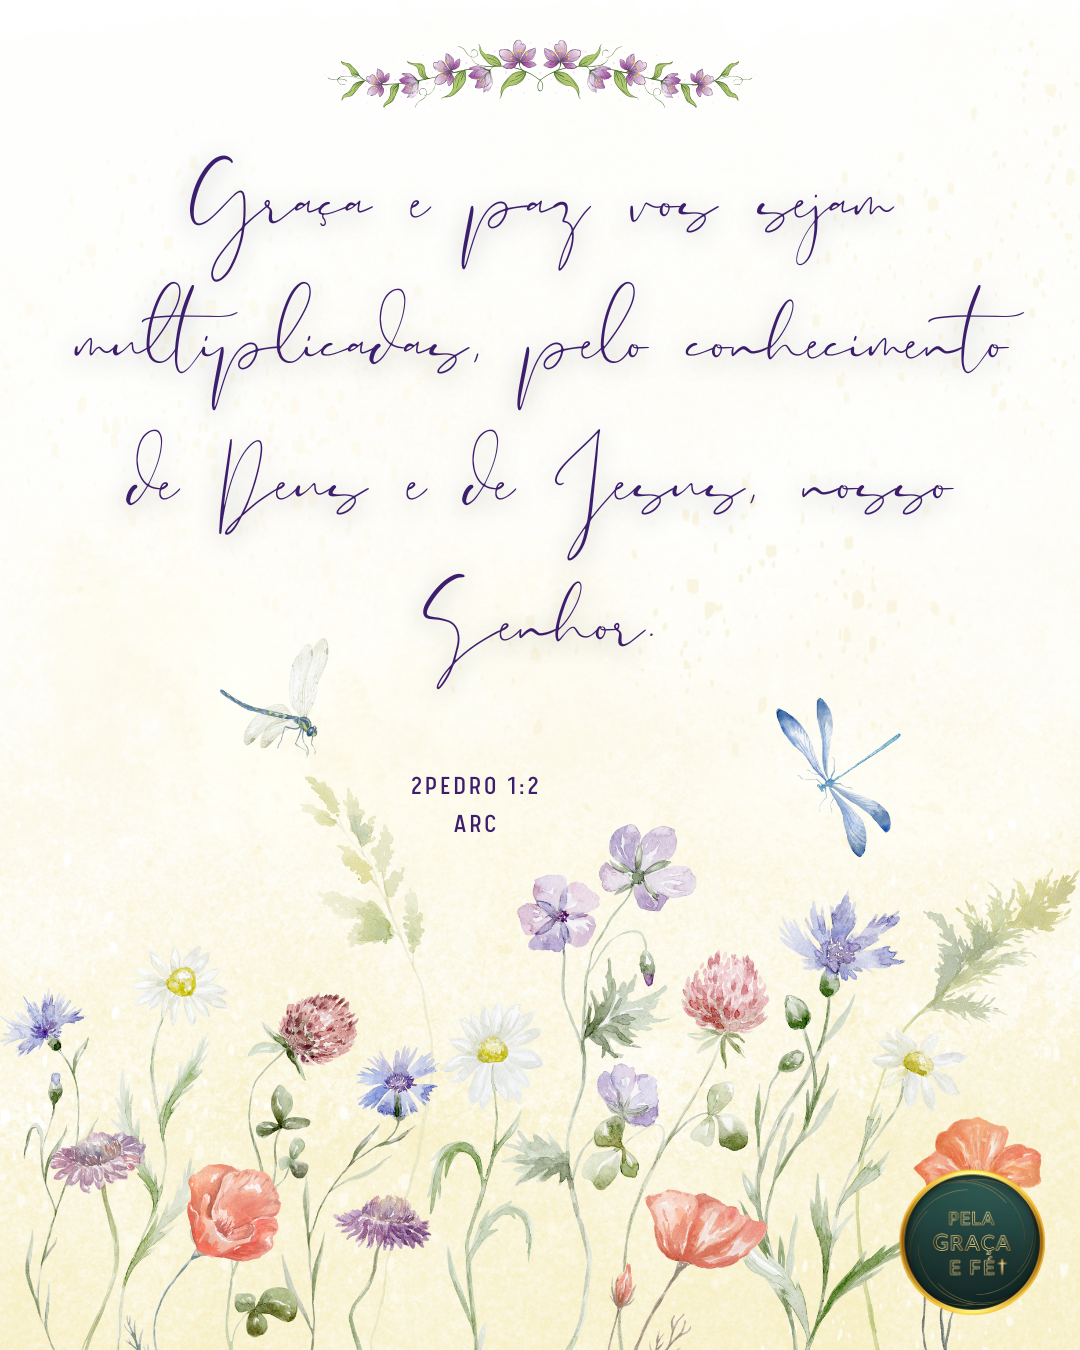 Graça e paz vos sejam
multiplicadas, pelo conhecimento
de Deus e de Jesus, nosso
Senhor.
2PEDRO 1:2
ARC
PELA
GRAÇA
E FÉ